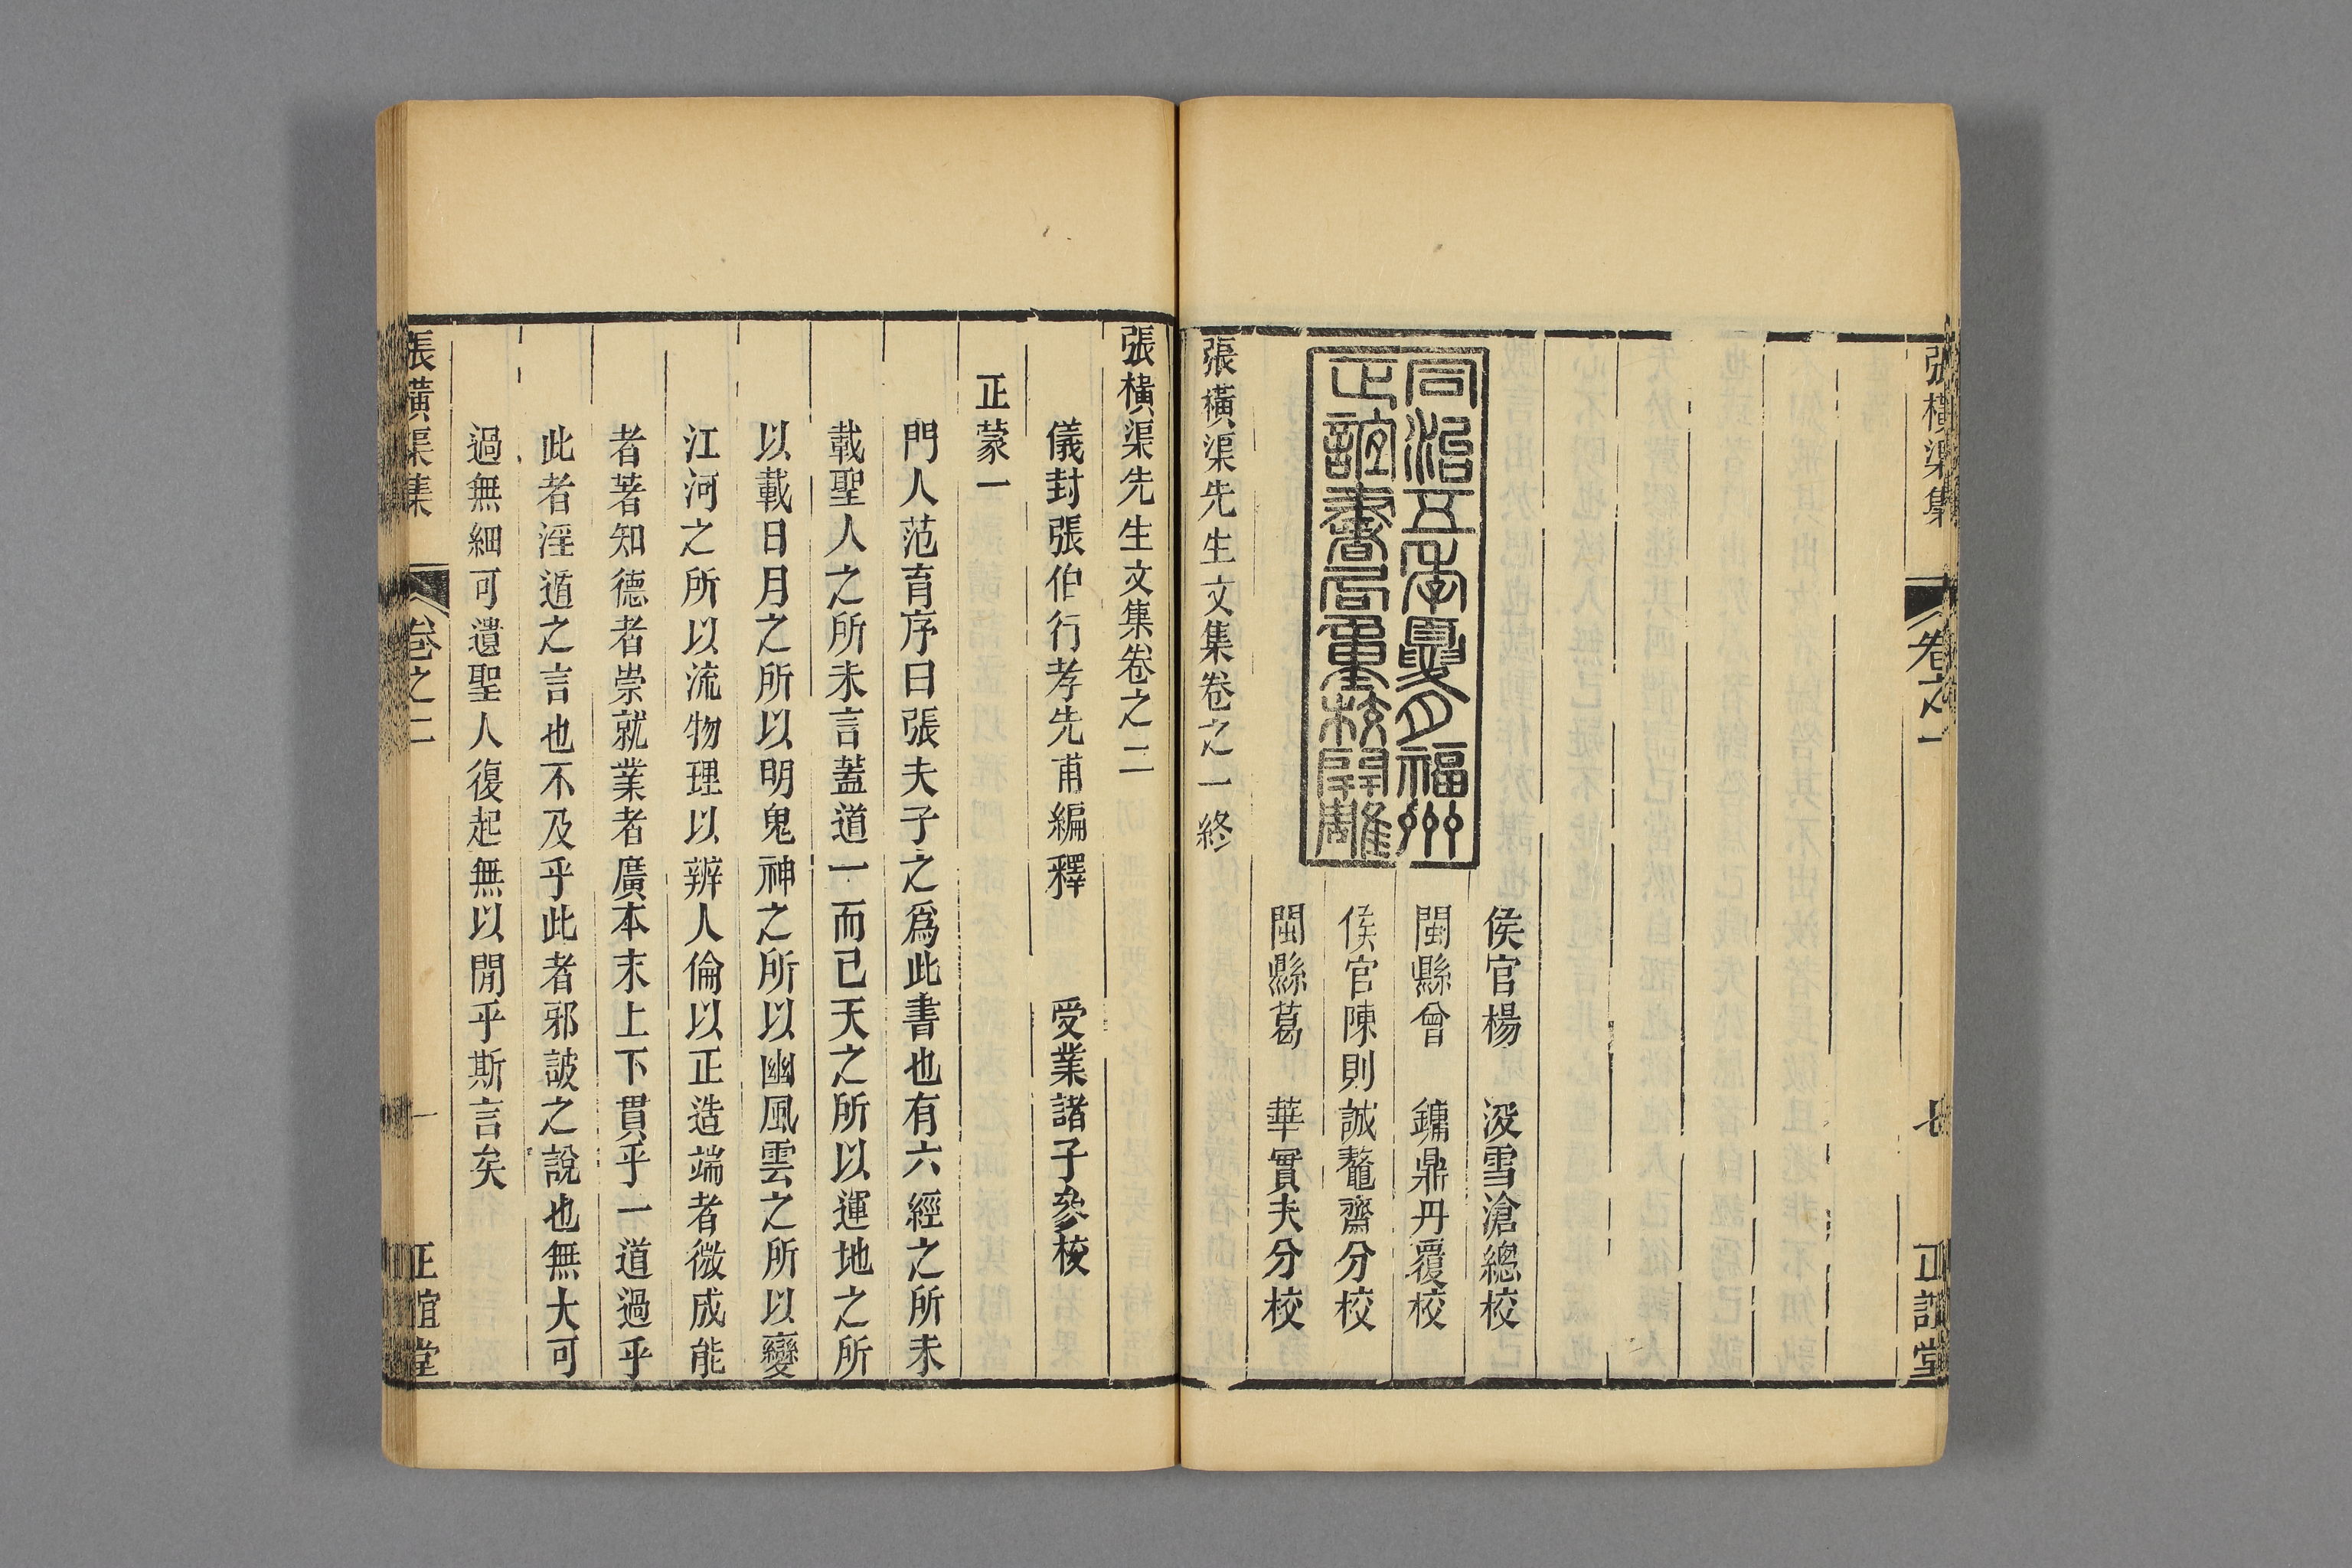 張橫渠集
卷之一
七
正誼堂
侯官楊　浚雪滄總校
閩縣曾　鏞鼎丹覆校
侯官陳則誠鼇齋分校
閩縣葛　華實夫分校
同治五年夏月福州
正誼書局重校開雕
張橫渠先生文集卷之一終
張橫渠先生文集卷之二
儀封張伯行孝先甫編釋　受業諸子參校
正蒙一
門人范育序曰張夫子之爲此書也有六經之所未
載聖人之所未言蓋道一而已天之所以運地之所
以載日月之所以明鬼神之所以幽風雲之所以變
江河之所以流物理以辨人倫以正造端者微成能
者著知德者崇就業者廣本末上下貫乎一道過乎
此者淫遁之言也不及乎此者邪詖之說也無大可
過無細可遺聖人復起無以閒乎斯言矣
張橫渠集
卷之二
一
正誼堂